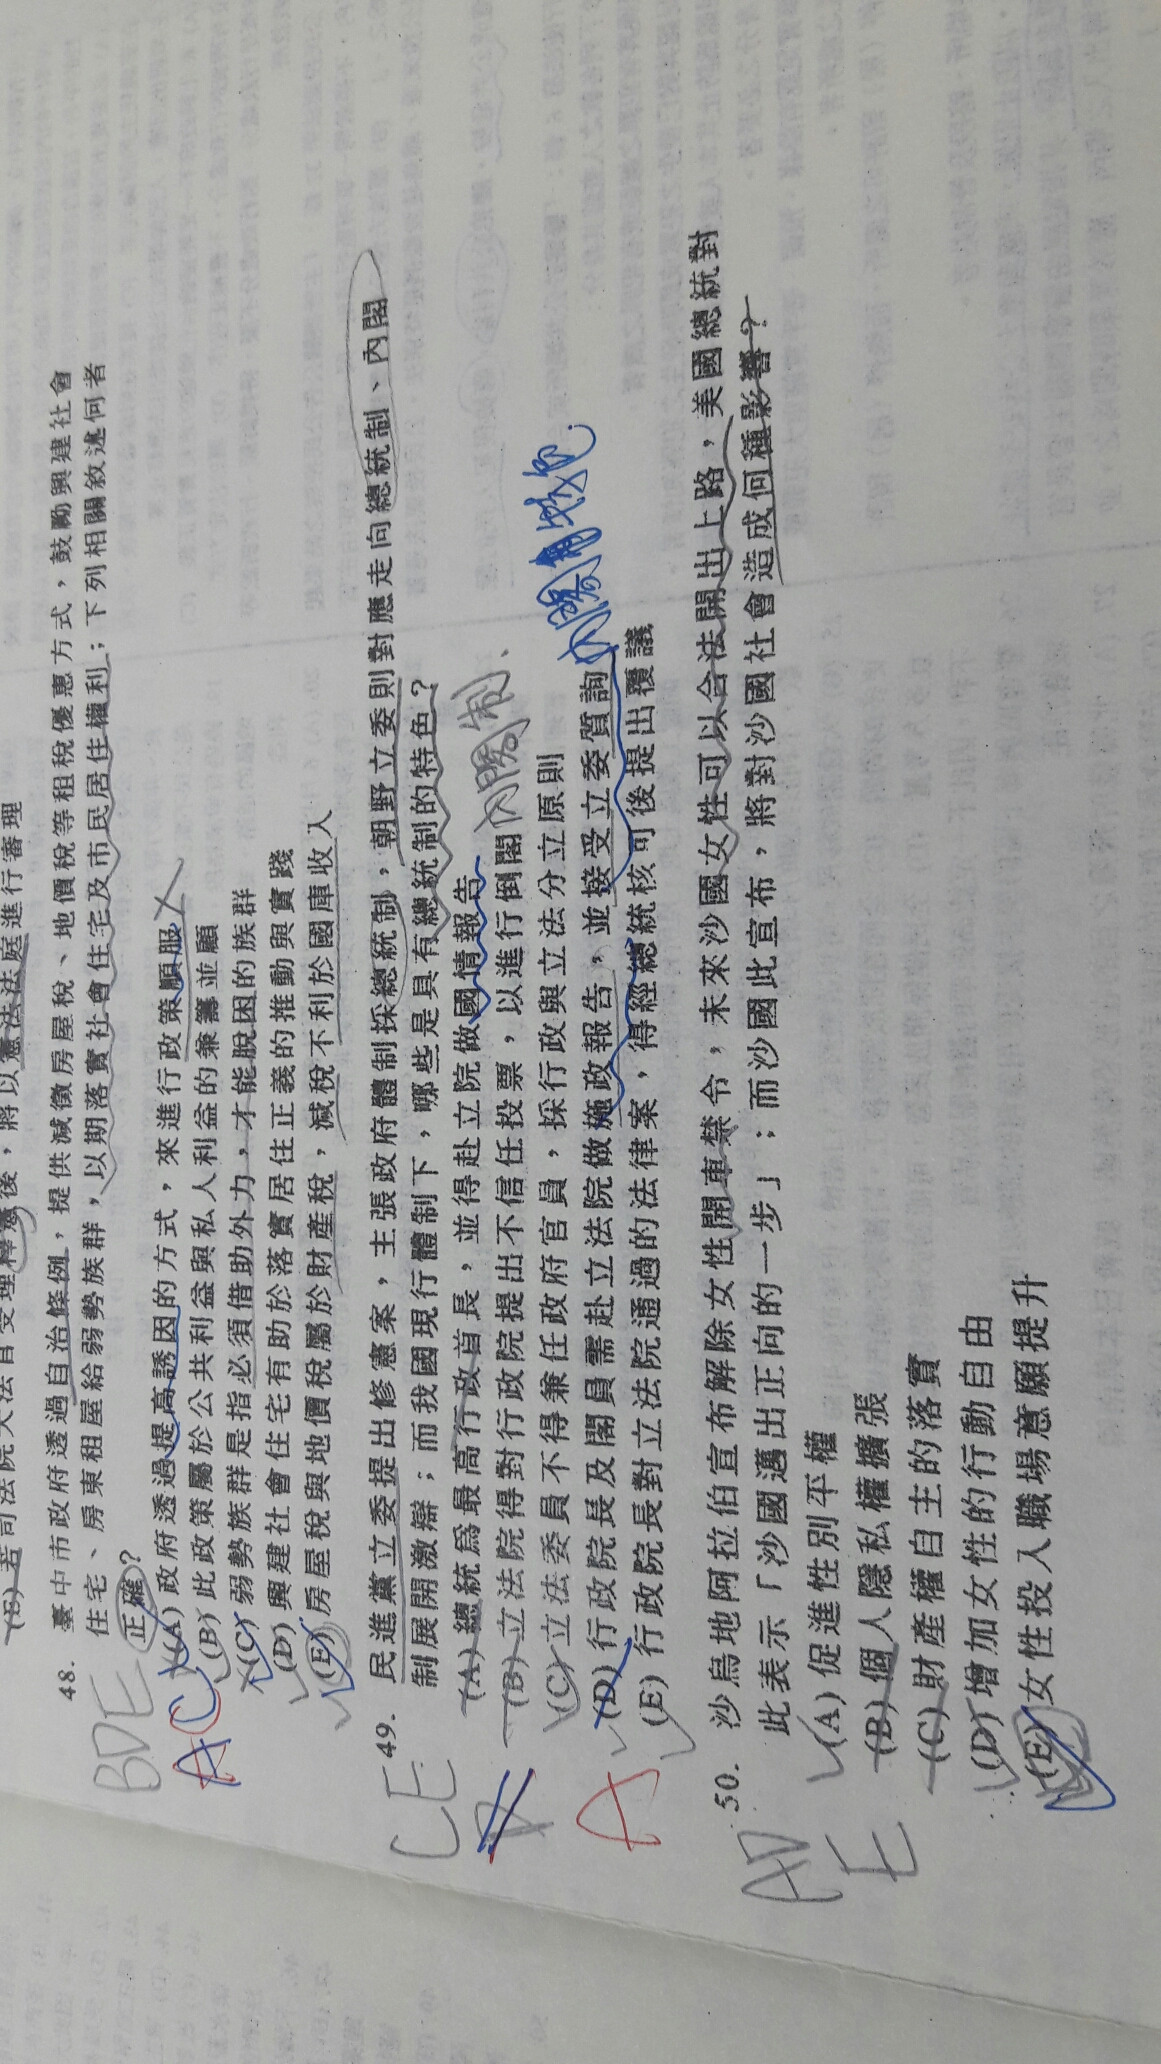 (E) 若司法院大法官受理釋憲後，將以憲法法庭進行審理
48. 臺中市政府透過自治條例，提供減徵房屋稅、地價稅等租稅優惠方式，鼓勵興建社會
住宅、房東租屋給弱勢族群，以期落實社會住宅及市民居住權利；下列相關敘述何者
正確？
(A) 政府透過提高誘因的方式，來進行政策順服
(B) 此政策屬於公共利益與私人利益的兼籌並顧
(C) 弱勢族群是指必須借助外力，才能脫困的族群
(D) 興建社會住宅有助於落實居住正義的推動與實踐
(E) 房屋稅與地價稅屬於財產稅，減稅不利於國庫收入
BDE
AC
49. 民進黨立委提出修憲案，主張政府體制採總統制，朝野立委則對應走向總統制、內閣
制展開激辯；而我國現行體制下，哪些是具有總統制的特色？
(A) 總統為最高行政首長，並得赴立院做國情報告
(B) 立法院得對行政院提出不信任投票，以進行倒閣 內閣制
(C) 立法委員不得兼任政府官員，採行政與立法分立原則
(D) 行政院長及閣員需赴立法院做施政報告，並接受立委質詢
(E) 行政院長對立法院通過的法律案，得經總統核可後提出覆議
CE
A
50. 沙烏地阿拉伯宣布解除女性開車禁令，未來沙國女性可以合法開出上路，美國總統對
此表示「沙國邁出正向的一步」；而沙國此宣布，將對沙國社會造成何種影響？
(A) 促進性別平權
(B) 個人隱私權擴張
(C) 財產權自主的落實
(D) 增加女性的行動自由
(E) 女性投入職場意願提升
AD
E